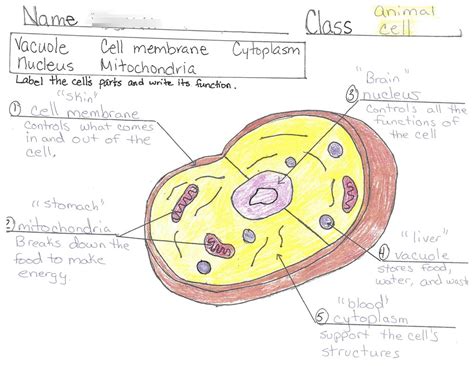 Name
Class animal cell
Vacuole Cell membrane Cytoplasm
Nucleus Mitochondria
Label the cell's parts and write its function.
"skin"
① cell membrane
controls what comes
in and out of the
cell.
"stomach"
② mitochondria
Breaks down the
food to make
energy
"Brain"
③ nucleus
Controls all the
functions of
the cell
"liver"
④ vacuole
stores food,
water, and wast
"blood"
⑤ cytoplasm
support the cell's
structures